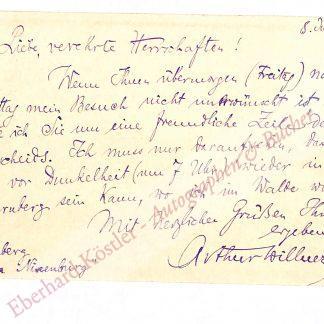 8. Ju
Liebe, verehrte Herrschaften!
Wenn Ihnen übermorgen (Freitag) na
ttag mein Besuch nicht unerwünscht ist
e ich Sie um eine freundliche Zeile Be
scheids. Ich muss nur darauf sehen, das
vor Dunkelheit (um 7 Uhr) wieder in
nberg sein kann, wo ich im Walde w
Mit herzlichen Grüßen Ihr
ergebe
Arthur Willner
berg
Eberhard Köstler - Autographen & Bücher